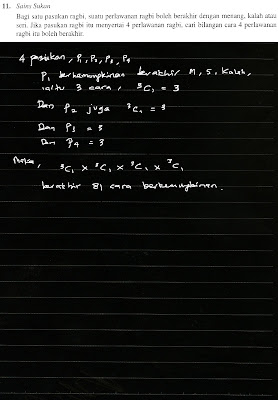 11. Sains Sukan
Bagi satu pasukan ragbi, suatu perlawanan ragbi boleh berakhir dengan menang, kalah atau
seri. Jika pasukan ragbi itu menyertai 4 perlawanan ragbi, cari bilangan cara 4 perlawanan
ragbi itu boleh berakhir.
4 pasukan, P₁, P₂, P₃, P₄
P₁ berkemungkinan berakhir M, S, Kalah,
iaitu 3 cara, ³C₁ = 3
Dan P₂ juga ³C₁ = 3
Dan P3 = 3
Dan P4 = 3
Maka, ³C₁ × ³C₁ × ³C₁ × ³C₁
berakhir 81 cara berkemungkinan.